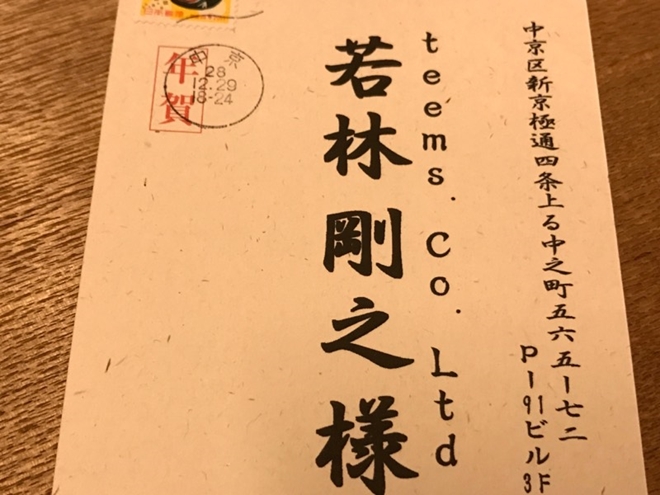 中京区新京極通四条上る中之町五六五ー七二
P-91ビル3F
teems.Co.Ltd
若林剛之様
年賀
中京
28
12.29
8-24